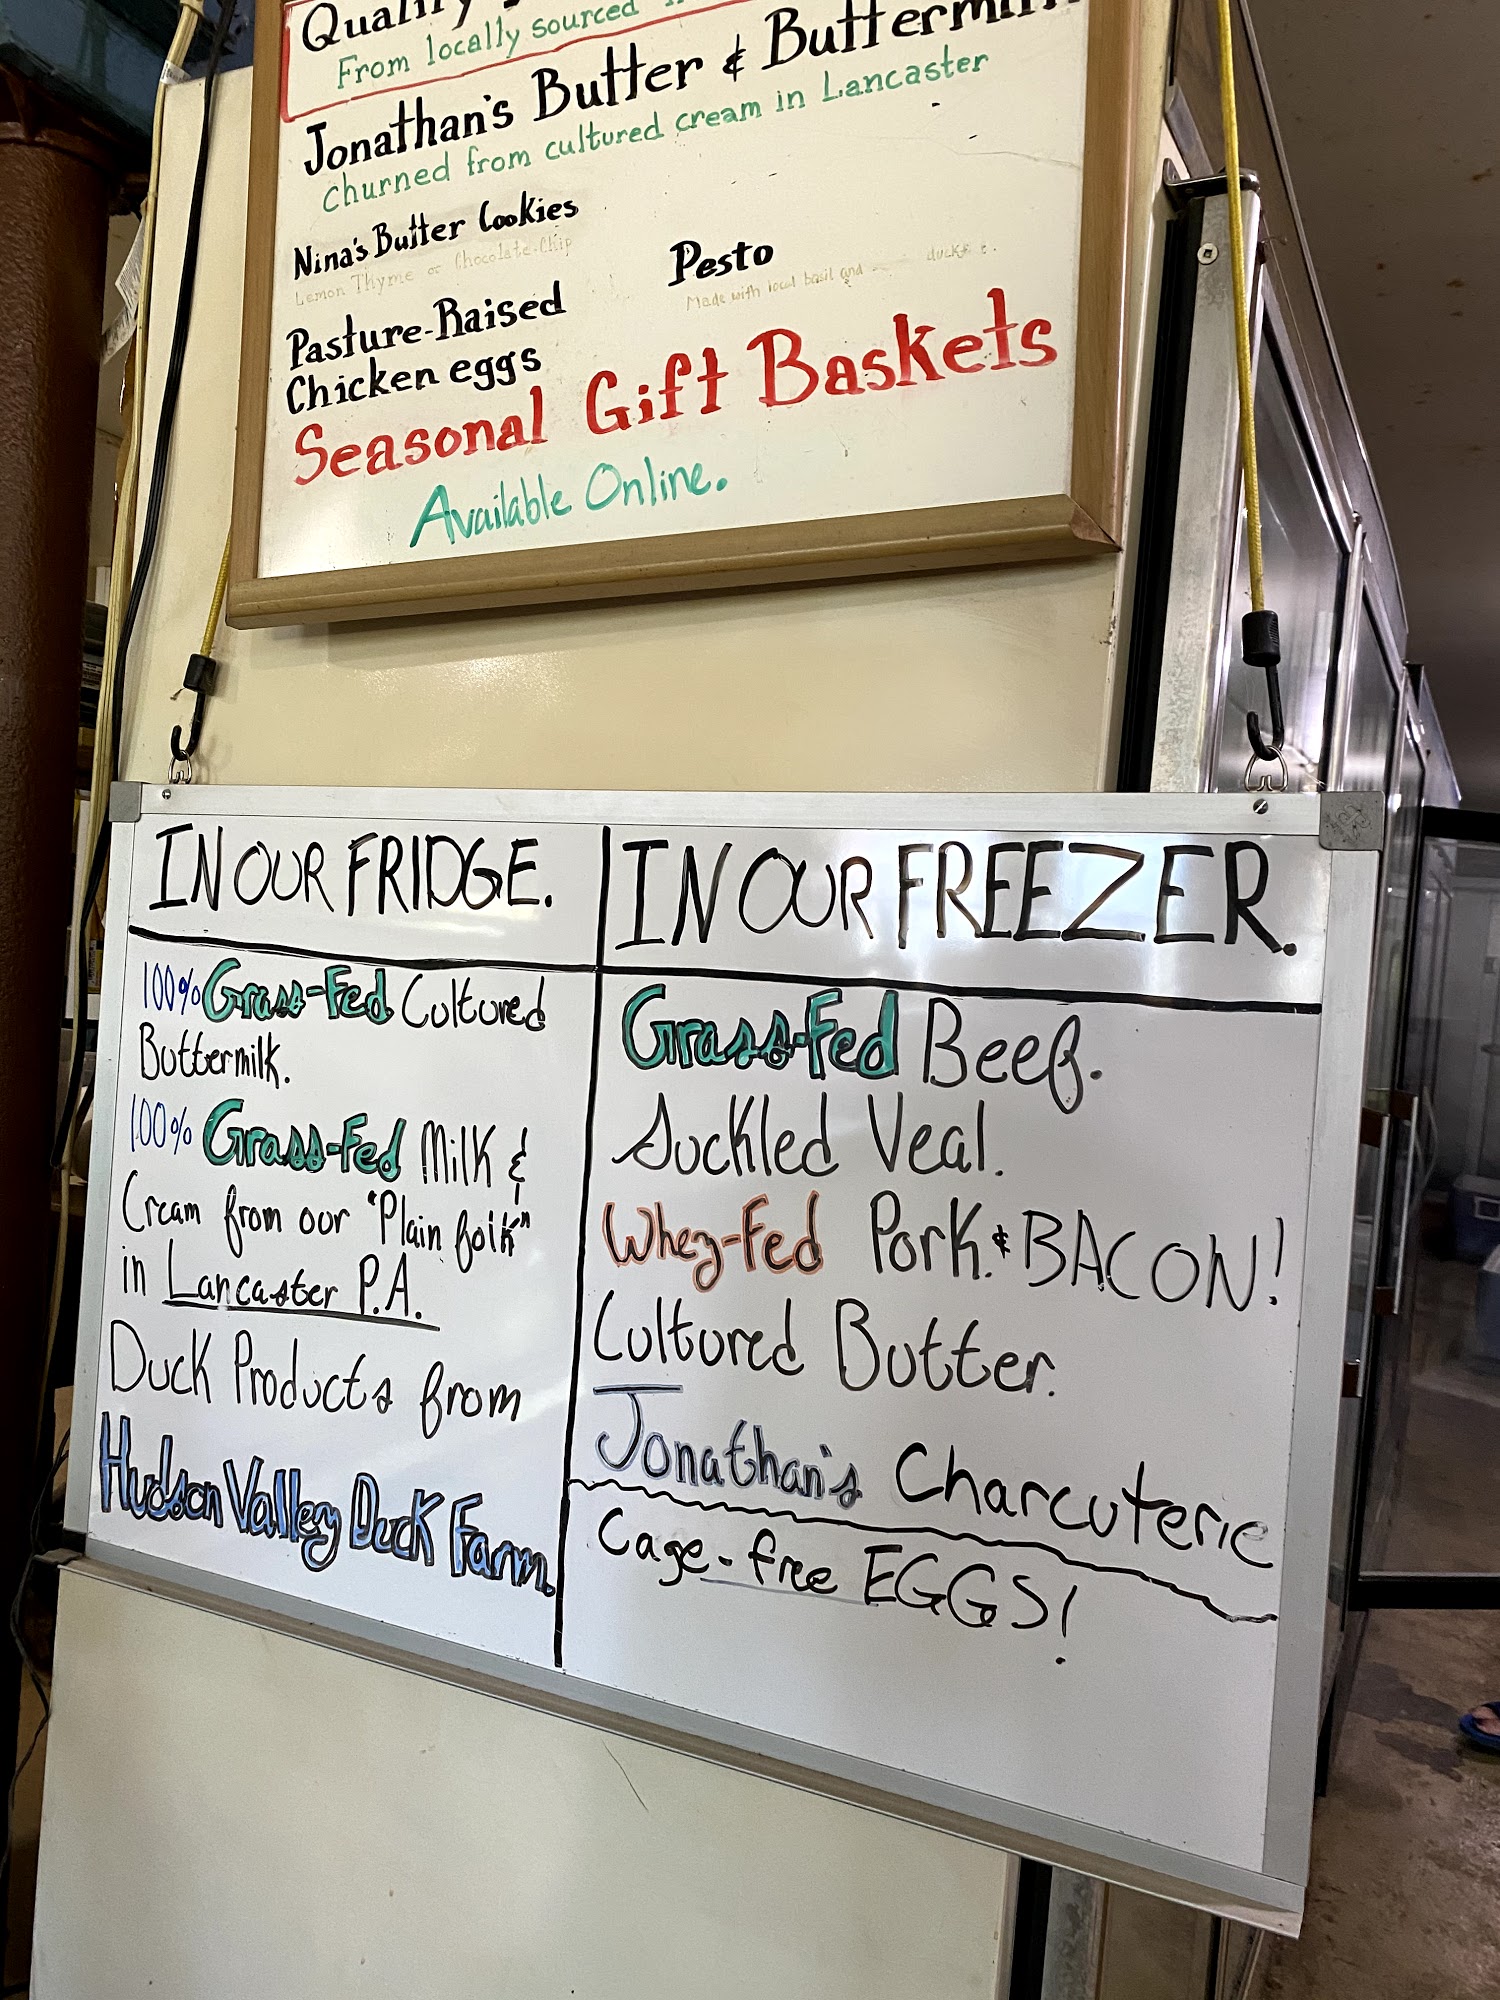 Quality
From locally sourced
Jonathan's Butter & Buttermilk
Churned from cultured cream in Lancaster
Nina's Butter Cookies
Lemon Thyme or Chocolate-Chip
Pesto
Made with local basil and
Pasture-Raised
Chicken eggs
Seasonal Gift Baskets
Available Online.
IN OUR FRIDGE.
100% Grass-Fed Cultured
Buttermilk.
100% Grass-Fed Milk &
Cream from our "Plain folk"
in Lancaster P.A.
Duck Products from
Hudson Valley Duck Farm.
IN OUR FREEZER.
Grass-Fed Beef.
Suckled Veal.
Whey-Fed Pork. & BACON!
Cultured Butter.
Jonathan's Charcuterie
Cage-free EGGS!